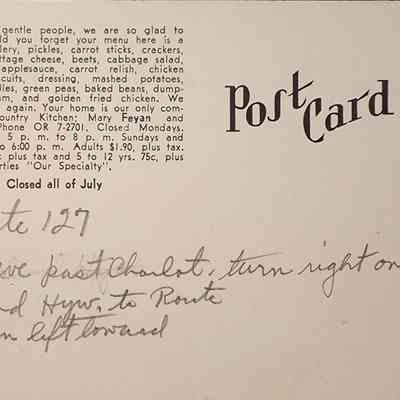 gentle people, we are so glad to
ld you forget your menu here is a
lery, pickles, carrot sticks, crackers,
ttage cheese, beets, cabbage salad,
applesauce, carrot relish, chicken
scuits, dressing, mashed potatoes,
dles, green peas, baked beans, dump-
am, and golden fried chicken. We
again. Your home is our only com-
ountry Kitchen; Mary Feyan and
Phone OR 7-2701, Closed Mondays.
5 p. m. to 8 p. m. Sundays and
to 6:00 p. m. Adults $1.90, plus tax.
c plus tax and 5 to 12 yrs. 75c, plus
rties "Our Specialty".
Closed all of July
Post Card
te 127
eve past Charlot, turn right on
nd Hyw. to Route
n left toward